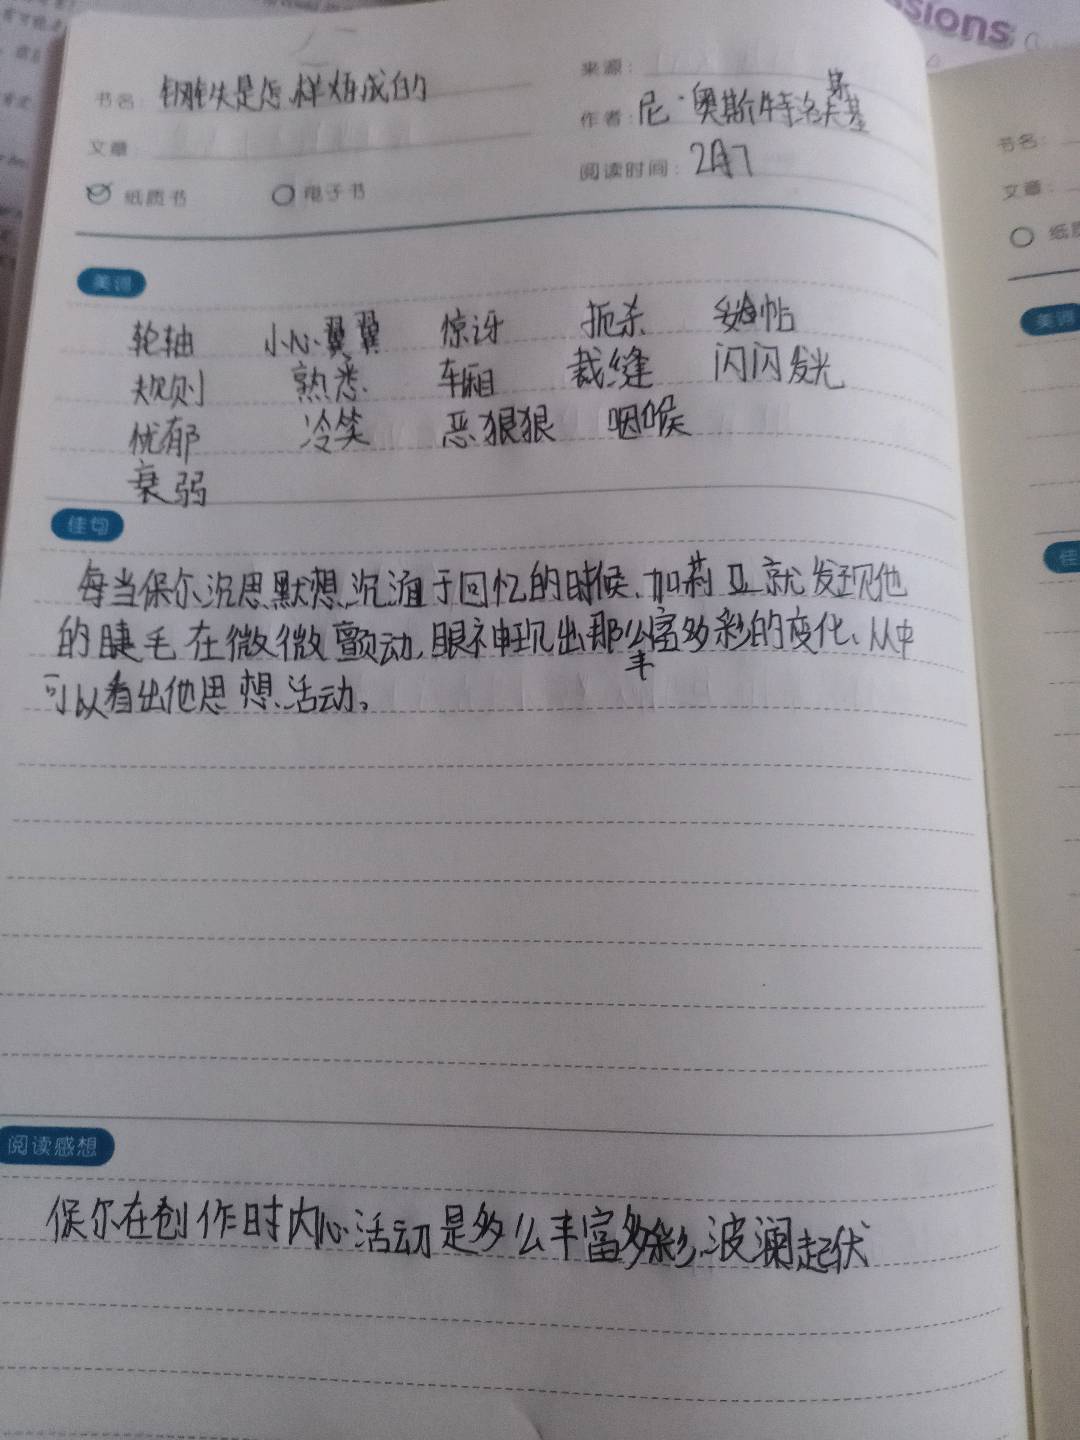 ssions
书名：钢铁是怎样炼成的
来源：
作者：尼·奥斯特洛夫斯基
文章
阅读时间：2月7
纸质书 电子书
美词
轮轴 小心翼翼 惊讶 扼杀 妥帖
规则 熟悉 车厢 裁缝 闪闪发光
忧郁 冷笑 恶狠狠 咽喉
衰弱
佳句
每当保尔沉思默想、沉湎于回忆的时候、加莉亚就发现他
的睫毛在微微颤动,眼神现出那么丰富多彩的变化、从中
可以看出他思想活动。
阅读感想
保尔在创作时内心活动是多么丰富多彩,波澜起伏
书名：
文章：
纸质
美词
佳